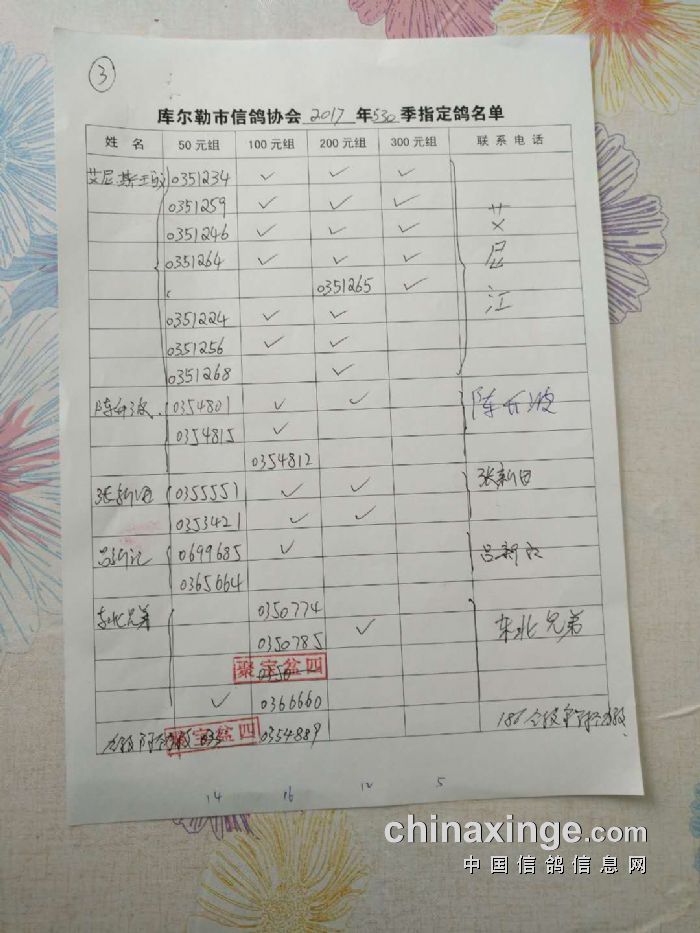 3
库尔勒市信鸽协会 2017 年 530 季指定鸽名单
姓 名 50 元组 100 元组 200 元组 300 元组 联 系 电 话
艾尼 0351234 ✓ ✓ ✓
0351259 ✓ ✓ ✓
0351246 ✓ ✓ ✓
0351264 ✓ ✓ ✓
0351265 ✓
0351224 ✓ ✓
0351256 ✓ ✓
0351268 ✓
艾尼江
0354801 ✓ ✓
0354815 ✓
0354812
张新田 0355551 ✓ ✓ 张新田
0353421 ✓ ✓
0699685 ✓
0365664
东北兄弟 0350774 东北兄弟
0350785 ✓
聚宝盆四
✓ 0366660
聚宝盆四 0354889
14 16 12 5
chinaxinge.com
中国信鸽信息网